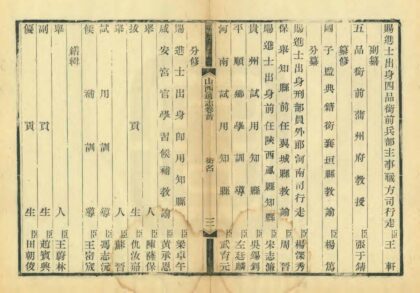 賜進士出身四品銜前兵部主事職方司行走 臣 王軒
副纂
五品銜前蒲州府教授 臣 張于鑄
纂修
國子監典籍銜壺垣縣教諭 臣 楊篤
分纂
賜進士出身刑部員外郎河南司行走 臣 楊深秀
保舉知縣前任翼城縣教諭 臣 周晉
賜進士出身前任陝西鳳縣知縣 臣 宋志濂
貴州試用知縣 臣 吳錫釗
平順鄉學訓導 臣 左廷麟
河南試用知縣 臣 武育元
山西通志卷首
銜名
三
賜進士出身即用知縣 臣 梁卓午
咸安宮官學習候補教諭 臣 黃承恩
分修
舉人 臣 蘇晉
舉人 臣 陳蔭保
拔貢生 臣 仇汝嘉
試用訓導 臣 馮志沆
候補訓導 臣 王宿宬
繕輯
舉人 臣 王蔚林
副貢生 臣 趙賓興
優貢生 臣 田朝俊